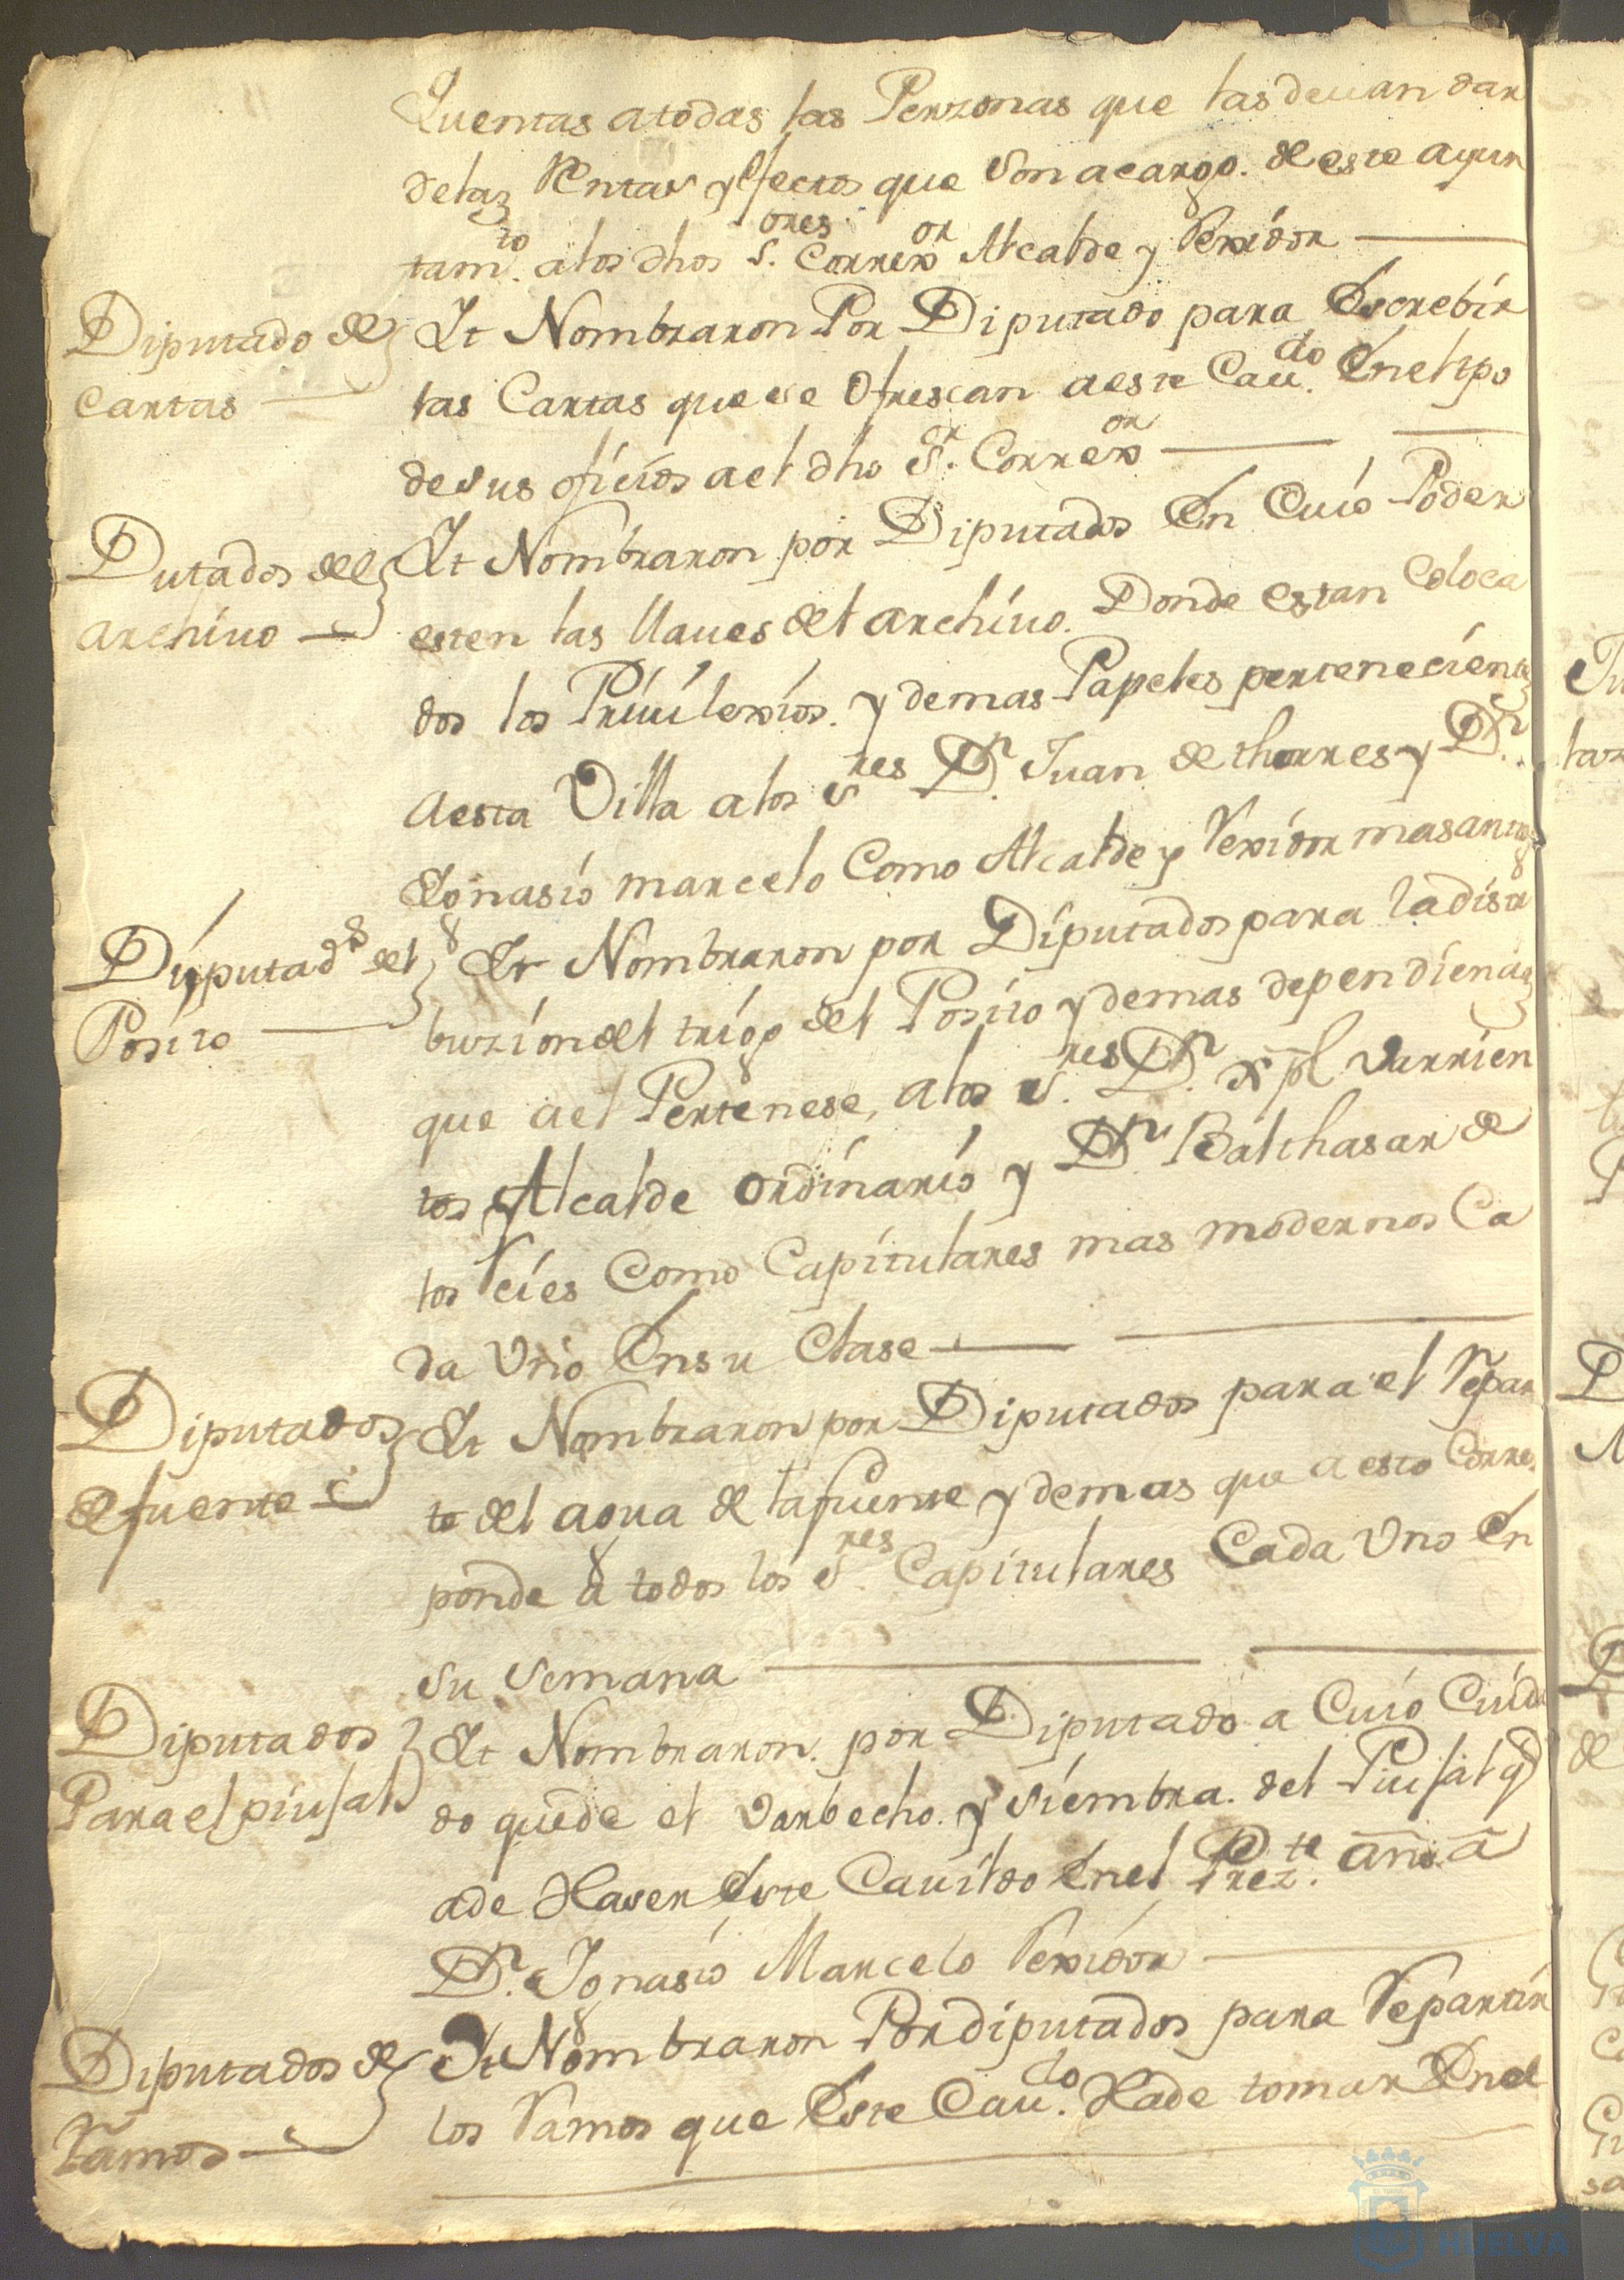 Quentas a todas las Perzonas que las deuan dar
de las Rentas y efectos que son a cargo. de este ayun
tam.to a los dhos S.ores Correx.or Alcalde y Rexidor
Diputado de
Cartas
It Nombraron Por Diputado para Escrebir
las Cartas que se ofrescan a este Cau.do En el tpo
de sus oficios a el dho S.r Correx.or
Dutados del
archiuo
It Nombraron por Diputados En Cuio Poder
esten las llaues del archiuo. Donde estan Coloca
dos los Priuilexios. y demas Papeles perteneciente
a esta Villa a los S.res D.n Juan de thorres y D.n
Ignasio marcelo Como Alcalde y Rexidor mas antigs
Diputad.s del
Posito
It Nombraron por Diputados para la distr
buzion del trigo del Posito y demas dependiencias
que a el Pertenese, a los S.res D.n Xpl Varrien
tos Alcalde ordinario y D.n Balthasar de
los Reies Como Capitulares mas modernos Ca
da Vno En su Clase
Diputados
de fuente
It Nombraron por Diputados para el Repar
te del agua de la fuente y demas que a esto Corres
ponde a todos los S.res Capitulares Cada Vno En
su semana
Diputados
Para el piufal
It Nombraron. por Diputado a Cuio Cuida
do quede el varbecho. y siembra. del Piufal q
a de Haser Este Cauildo En el Prez.te año a
D.n Ignasio Marcelo Rexidor
Diputados de
Ramos
It Nombraron Por diputados para Repartir
los Ramos que Este Cau.do Ha de tomar En el
HUELVA